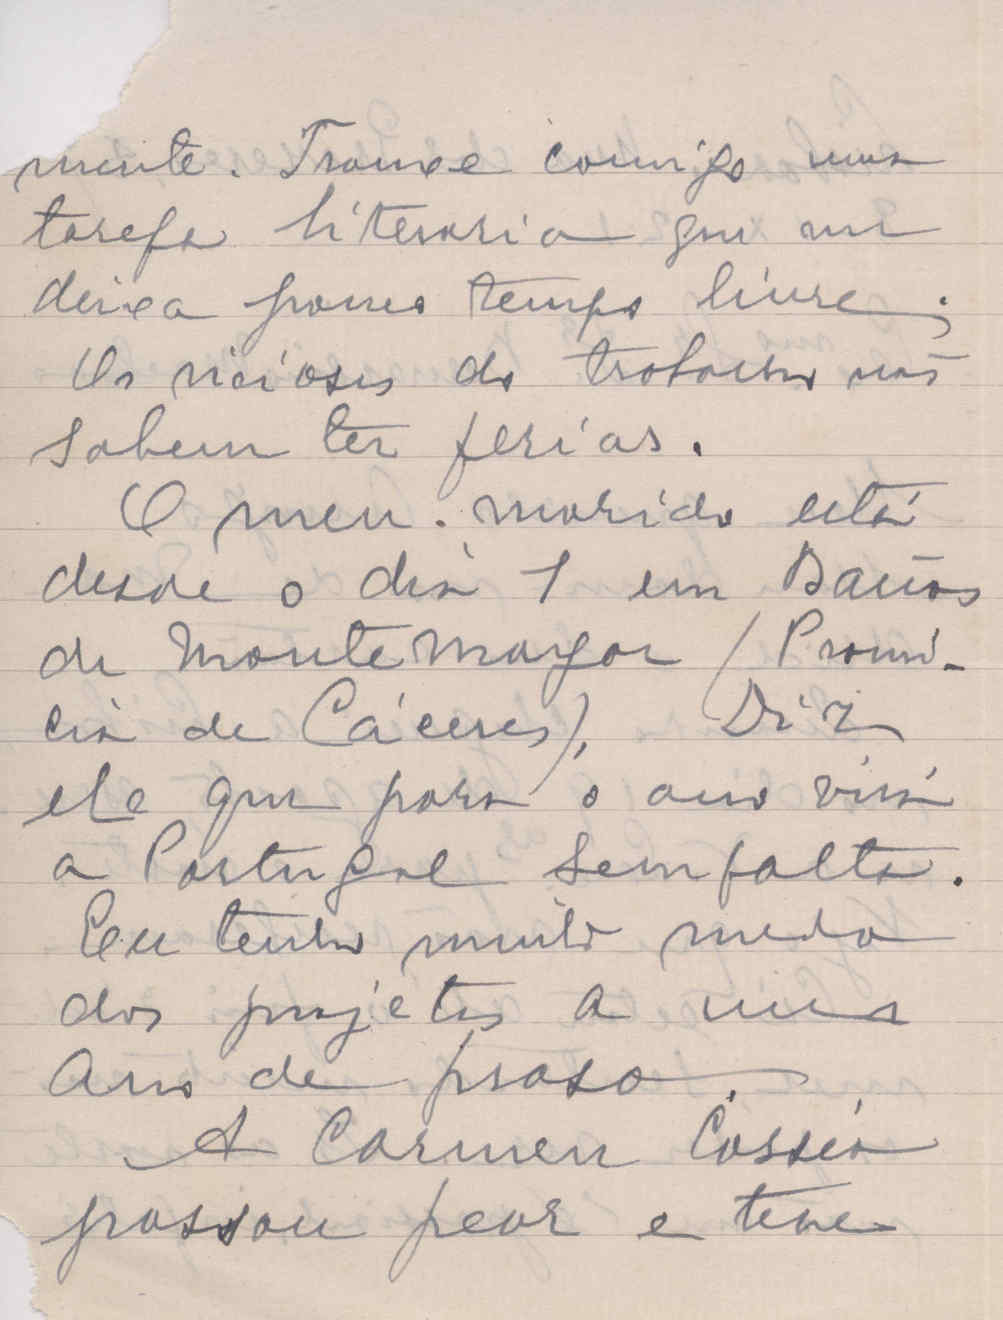 mente. Trouxe comigo uma
tarefa literaria que me
deixa pouco tempo livre.
Os viciosos do trabalho não
sabem ter ferias.
O meu marido está
desde o dia 1 em Baños
de Montemayor (Provin-
cia de Cáceres). Diz
ele que para o ano virá
a Portugal sem falta.
Eu tenho muito medo
dos projetos a um
ano de praso.
A Carmen Cossío
passou pear e teve